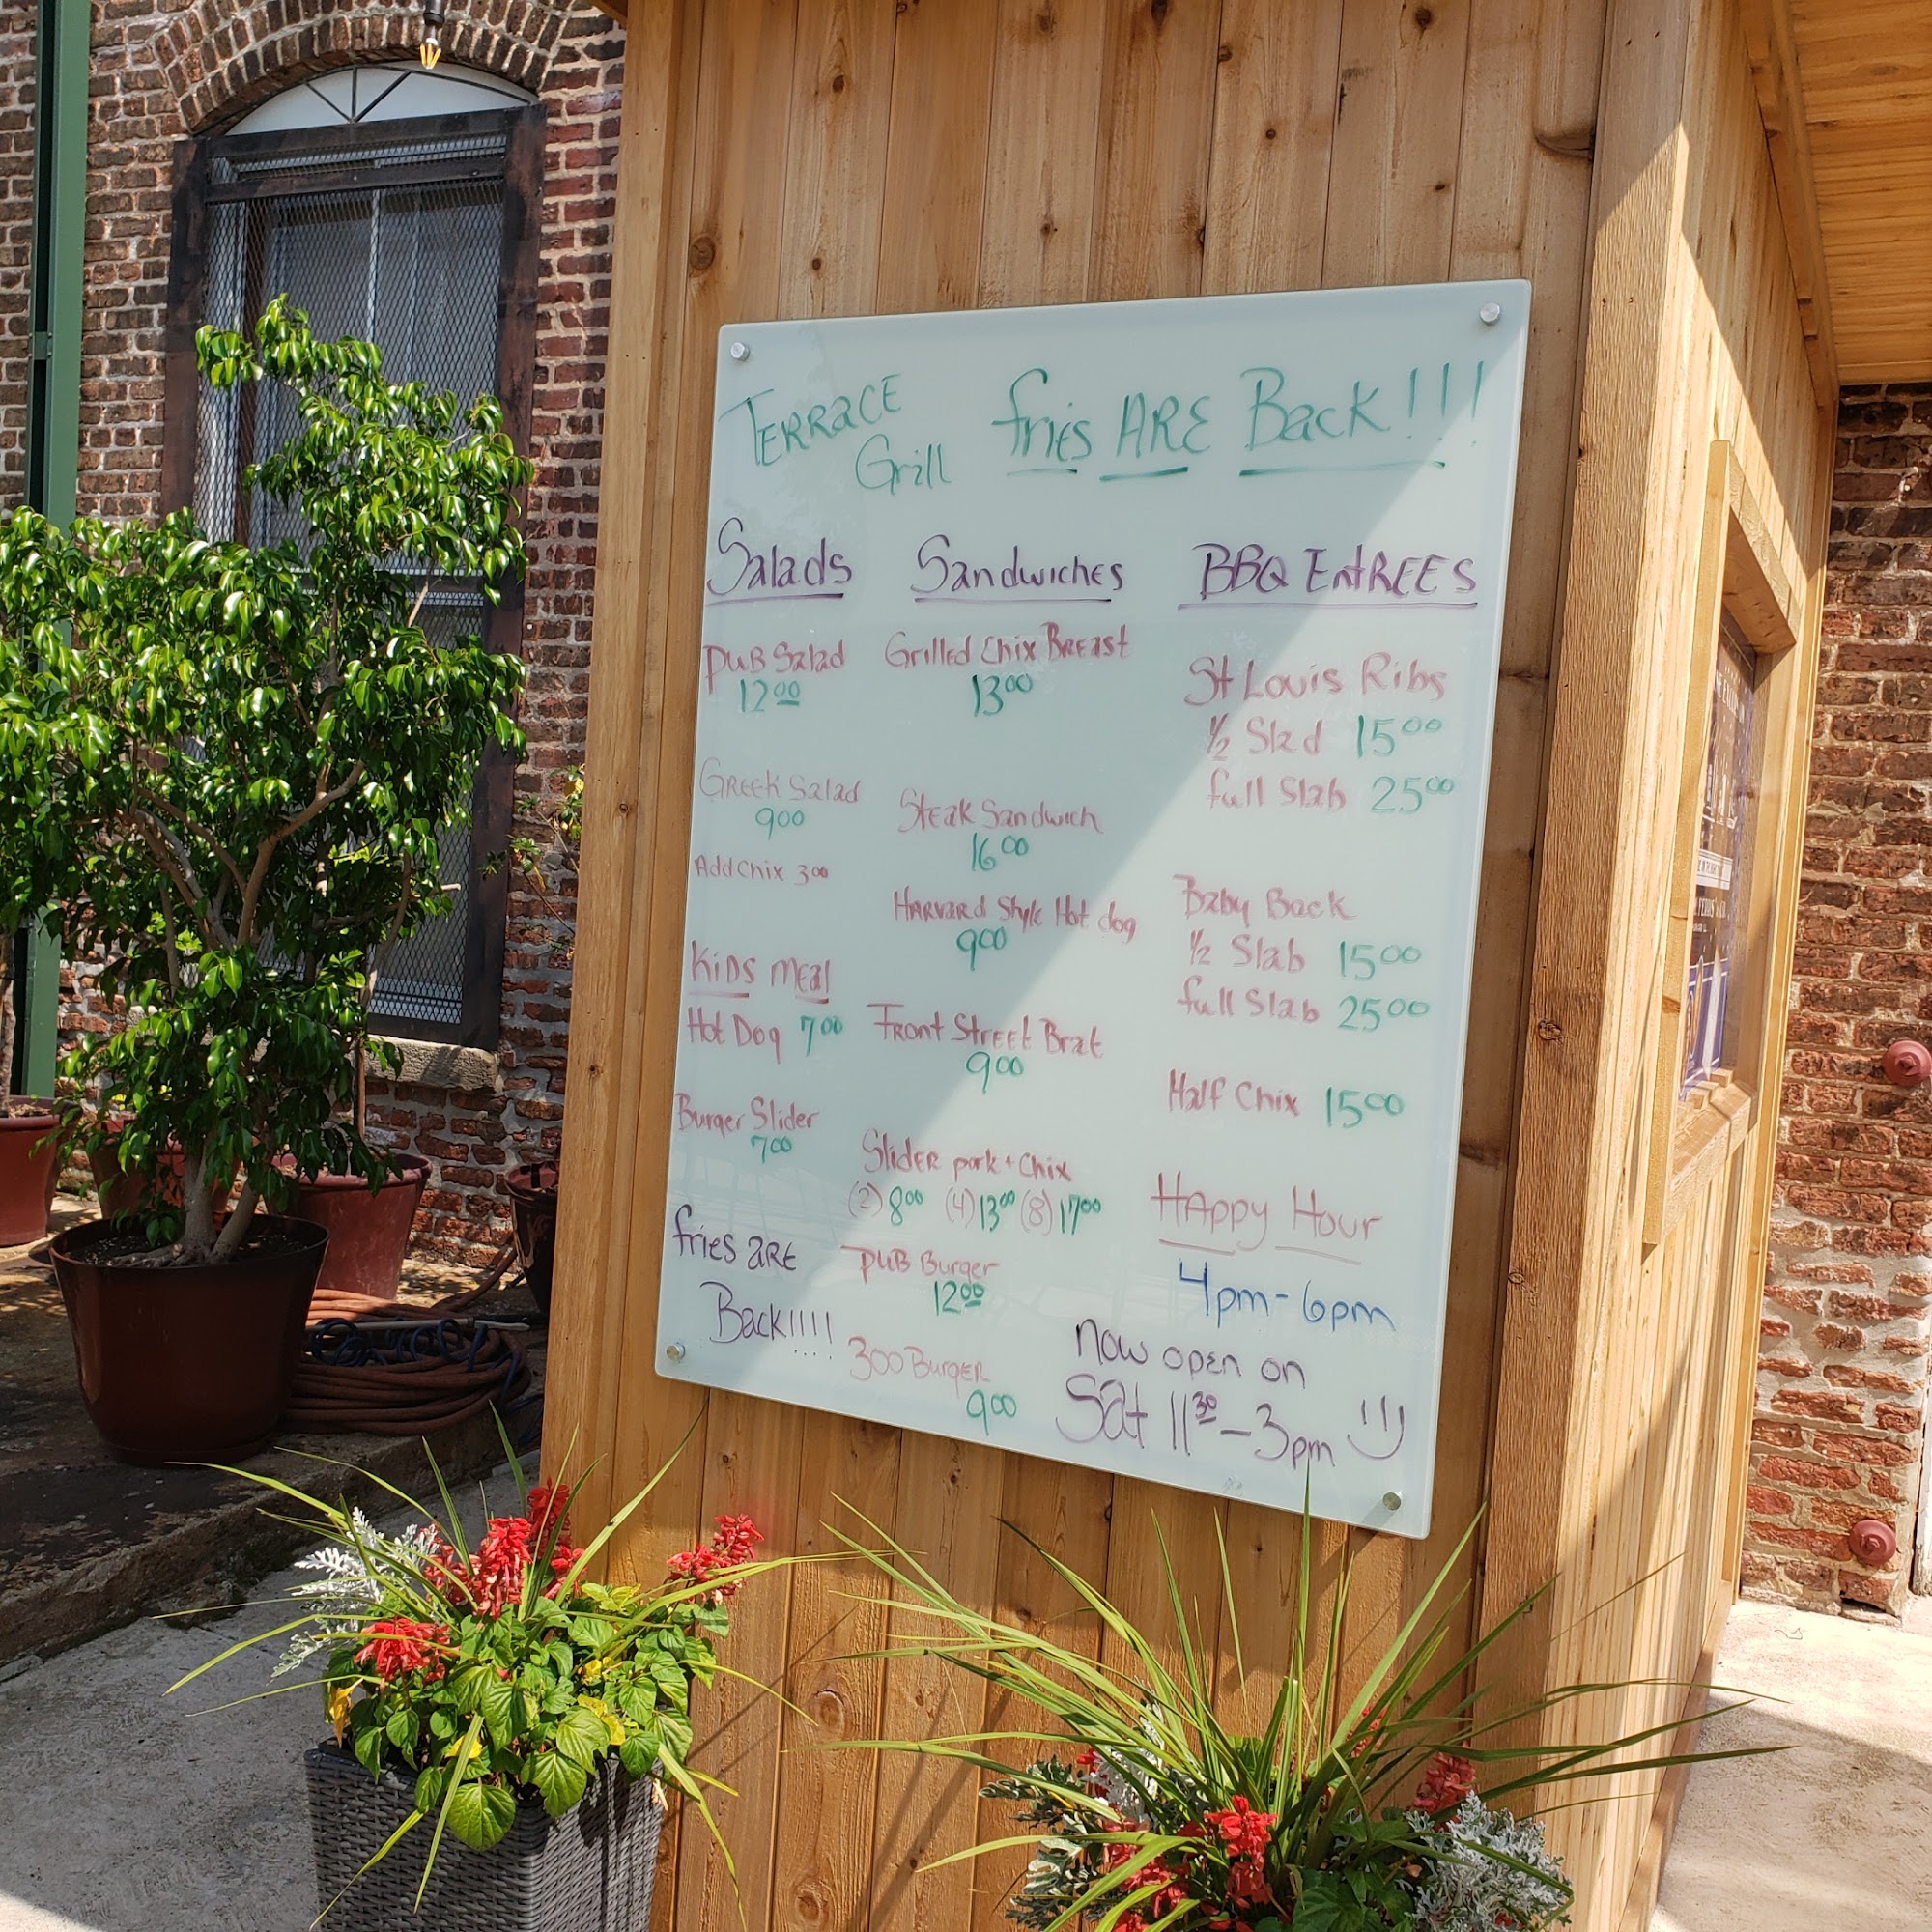 TERRACE Grill
fries ARE Back!!!
Salads
PUB Salad
12 00
GREEK Salad
9 00
Add Chix 3 00
KiDS mEal
Hot Dog 7 00
Burger Slider
7 00
fries aRE
Back!!!!
Sandwiches
Grilled Chix BREast
13 00
Steak Sandwich
16 00
HARVARD Style Hot dog
9 00
FRont StREEt Brat
9 00
SliDER pork + Chix
(2) 8 00 (4) 13 00 (8) 17 00
PUB Burger
12 00
300 BurgER
9 00
BBQ EntREES
St Louis Ribs
1/2 Slad 15 00
full Slab 25 00
Baby Back
1/2 Slab 15 00
full Slab 25 00
Half Chix 15 00
HAppy Hour
4pm - 6pm
now open on
Sat 11 30 - 3pm